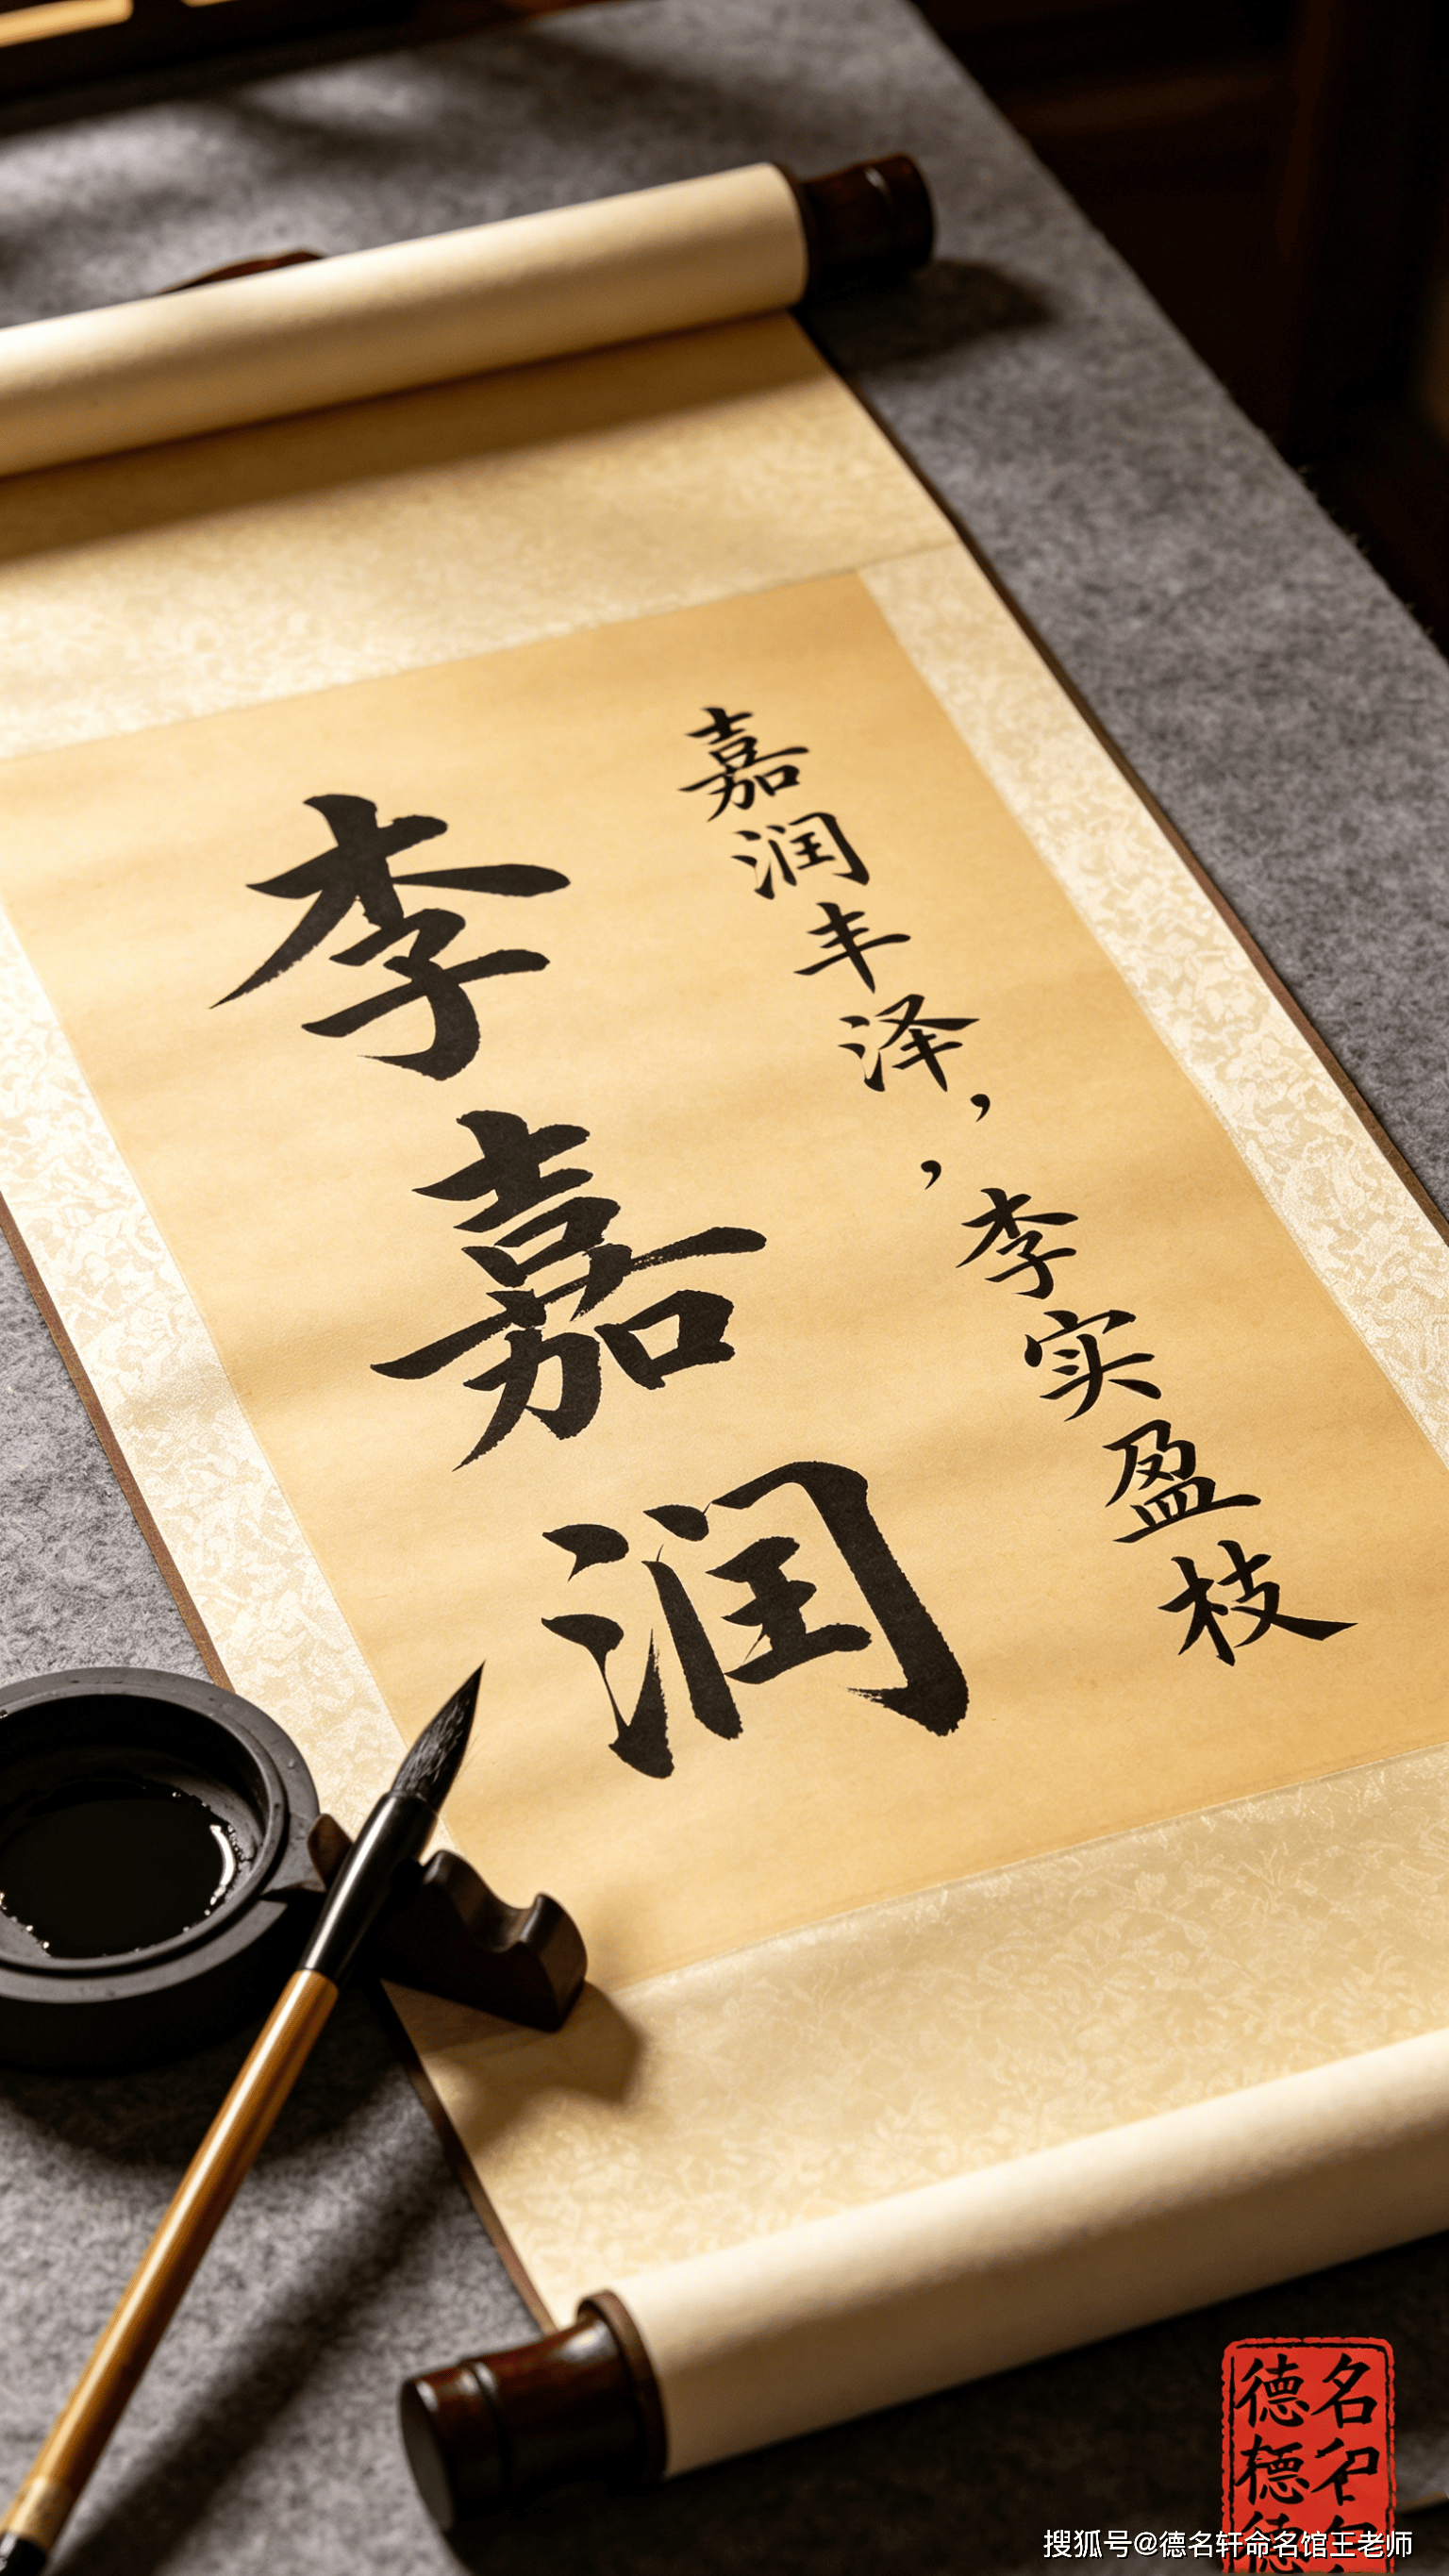 李嘉润
嘉润丰泽，
，李实盈枝
德名
搜狐号@德名轩命名馆王老师